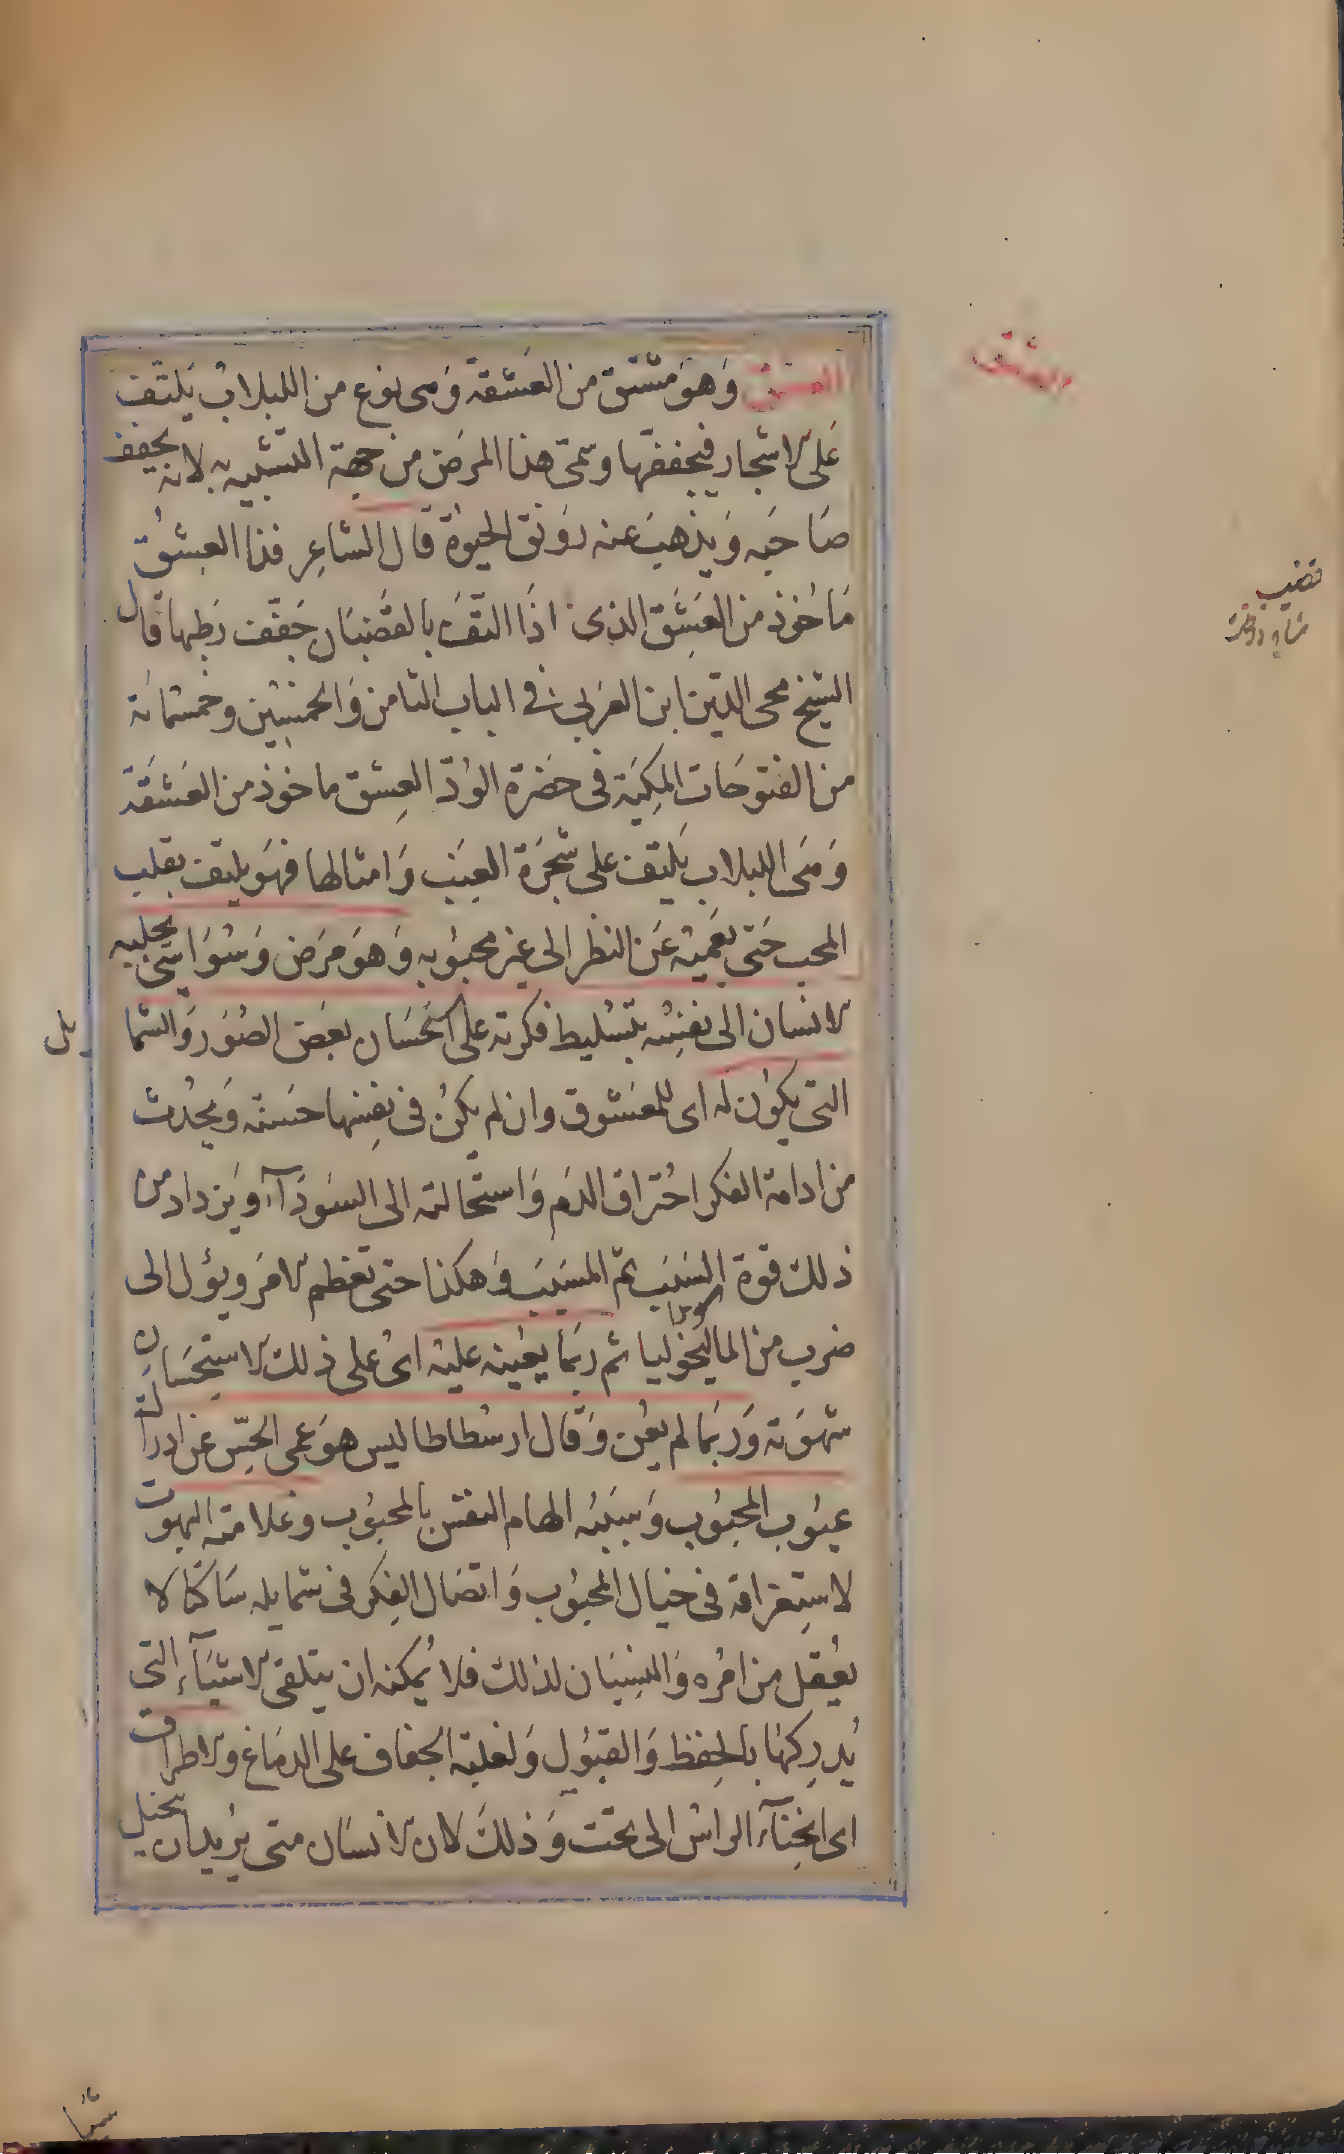 العشق
العشق وهو مشتق من العَشقة وهى نوع من اللبلاب يَلتّف
على الاشجار فيجففّها وسمّى هذا المرض من جهة التشبيه لانه يجفف
صَاحبَه وَيذهبَ عنه رَونق الحيٰوة قال الشاعِر فذا العِشقُ
مَاخُوذ من العَشَق الذى اذَا التّفَ بالقضبَان جَفّف رَطبها قال
الشيخ محى الدّين ابن العَربى فى الباب الثامن وَالخمسين وخمسمائة
من الفتوحَات المكِيّة فى حضرة الوُدّ العِشق ماخوذ من العَشَقة
وَهَى اللبلاب يَلتف على شجَرة العِنَب وَامثالها فهَو يلتف بقلب
المحب حَتى يعَميه عَن النظر الى غير محبُوبه وَهوَ مرَض وَسْوَاسى يجلبه
الانسان الى نفسِه بتسْليط فكرته على استحسَان بعَض الصُوَر وَالشما
يل
التى يكوُن له اى للمعَشوق وان لم يكنُ فى نفِسها حسَنة وَيحدُث
من ادامة الفكر احُتراق الدَم وَاستحالته الى السَودَآء وَيزداد من
ذلك قوة السَبَب ثمّ المسَبَب وَهكذا حتى تعَظم الامَر ويؤل الى
ضرب من الماليخوليا ثم ربَما يعُينه عليْه اىُ على ذلك الاستِحسَان
شهَوَته وَربَما لم يعُن وَقال ارسُطاطاليس هوَ عمى الحِسّ عن ادراك
عيوُب المحبُوب وَسَببُه الهام النفسْ بالمحبُوب وعَلامته البهوت
لاستِغراقه فى خيال المحبُوب وَاتصَال الفِكر فى شمايله سَاكنًا لا
يعُقل من امْره وَالنسِيَان لذلك فلا يُمكنه ان يتلقى الاشيَآء التى
يُدرِكهُا بالحِفظ وَالقبُول وَلغلبَة الجفاف على الدمَاغ والاطراق
اى انحِنَآء الراسْ الى تحَت وَذلكَ لان الانسَان متى يرُيد ان يتخيل
قضيب
شيئا